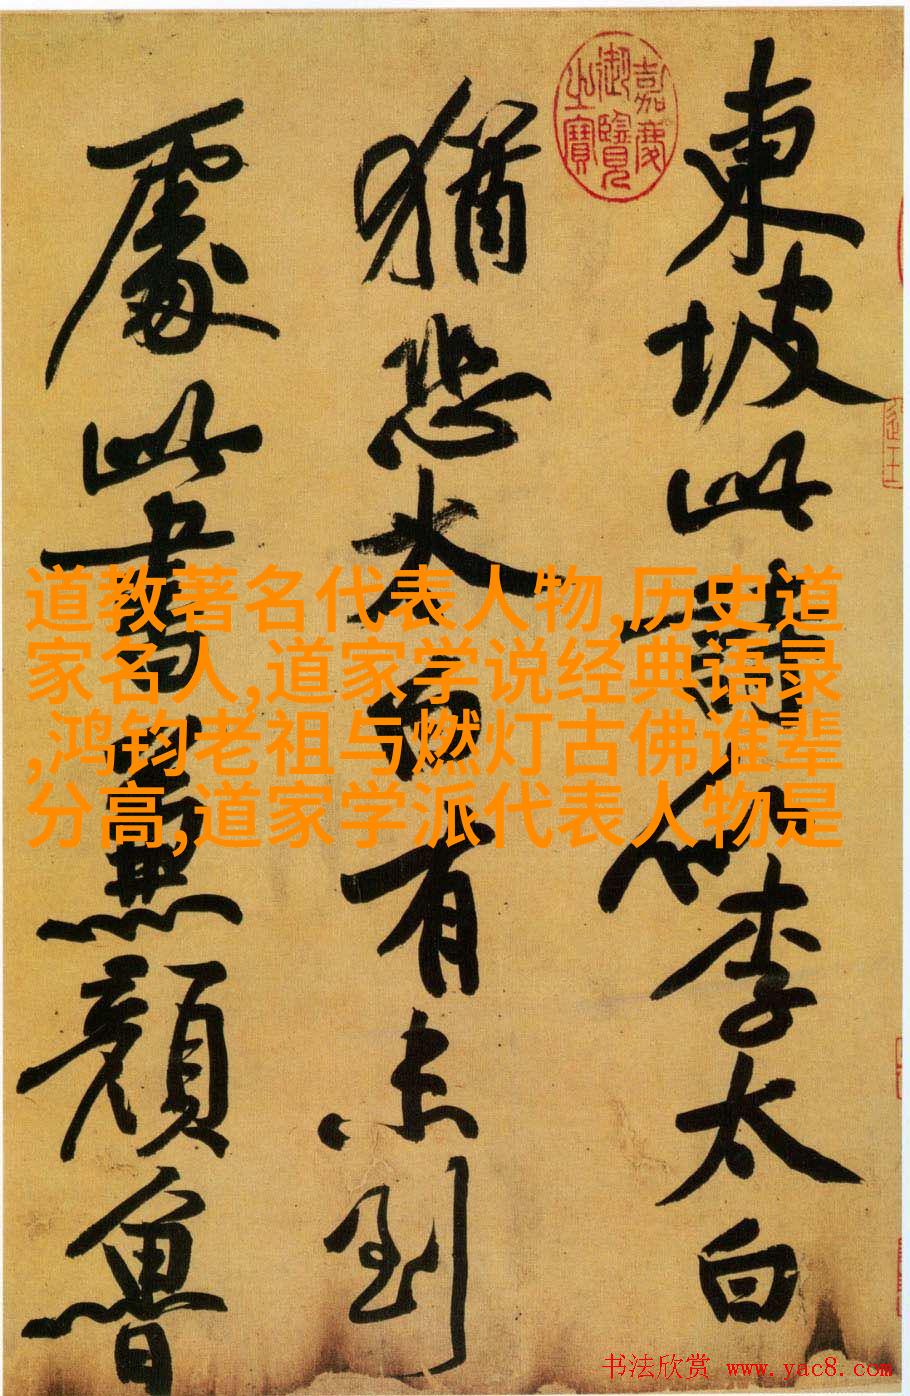 東坡此詩似李太白
猶恐太白有未到
處此書兼顏魯
嘉慶御覽之寶
道教著名代表人物,历史道
家名人,道家学说经典语录
,鸿钧老祖与燃灯古佛谁辈
分高,道家学派代表人物是
书法欣赏 www.yac8.com